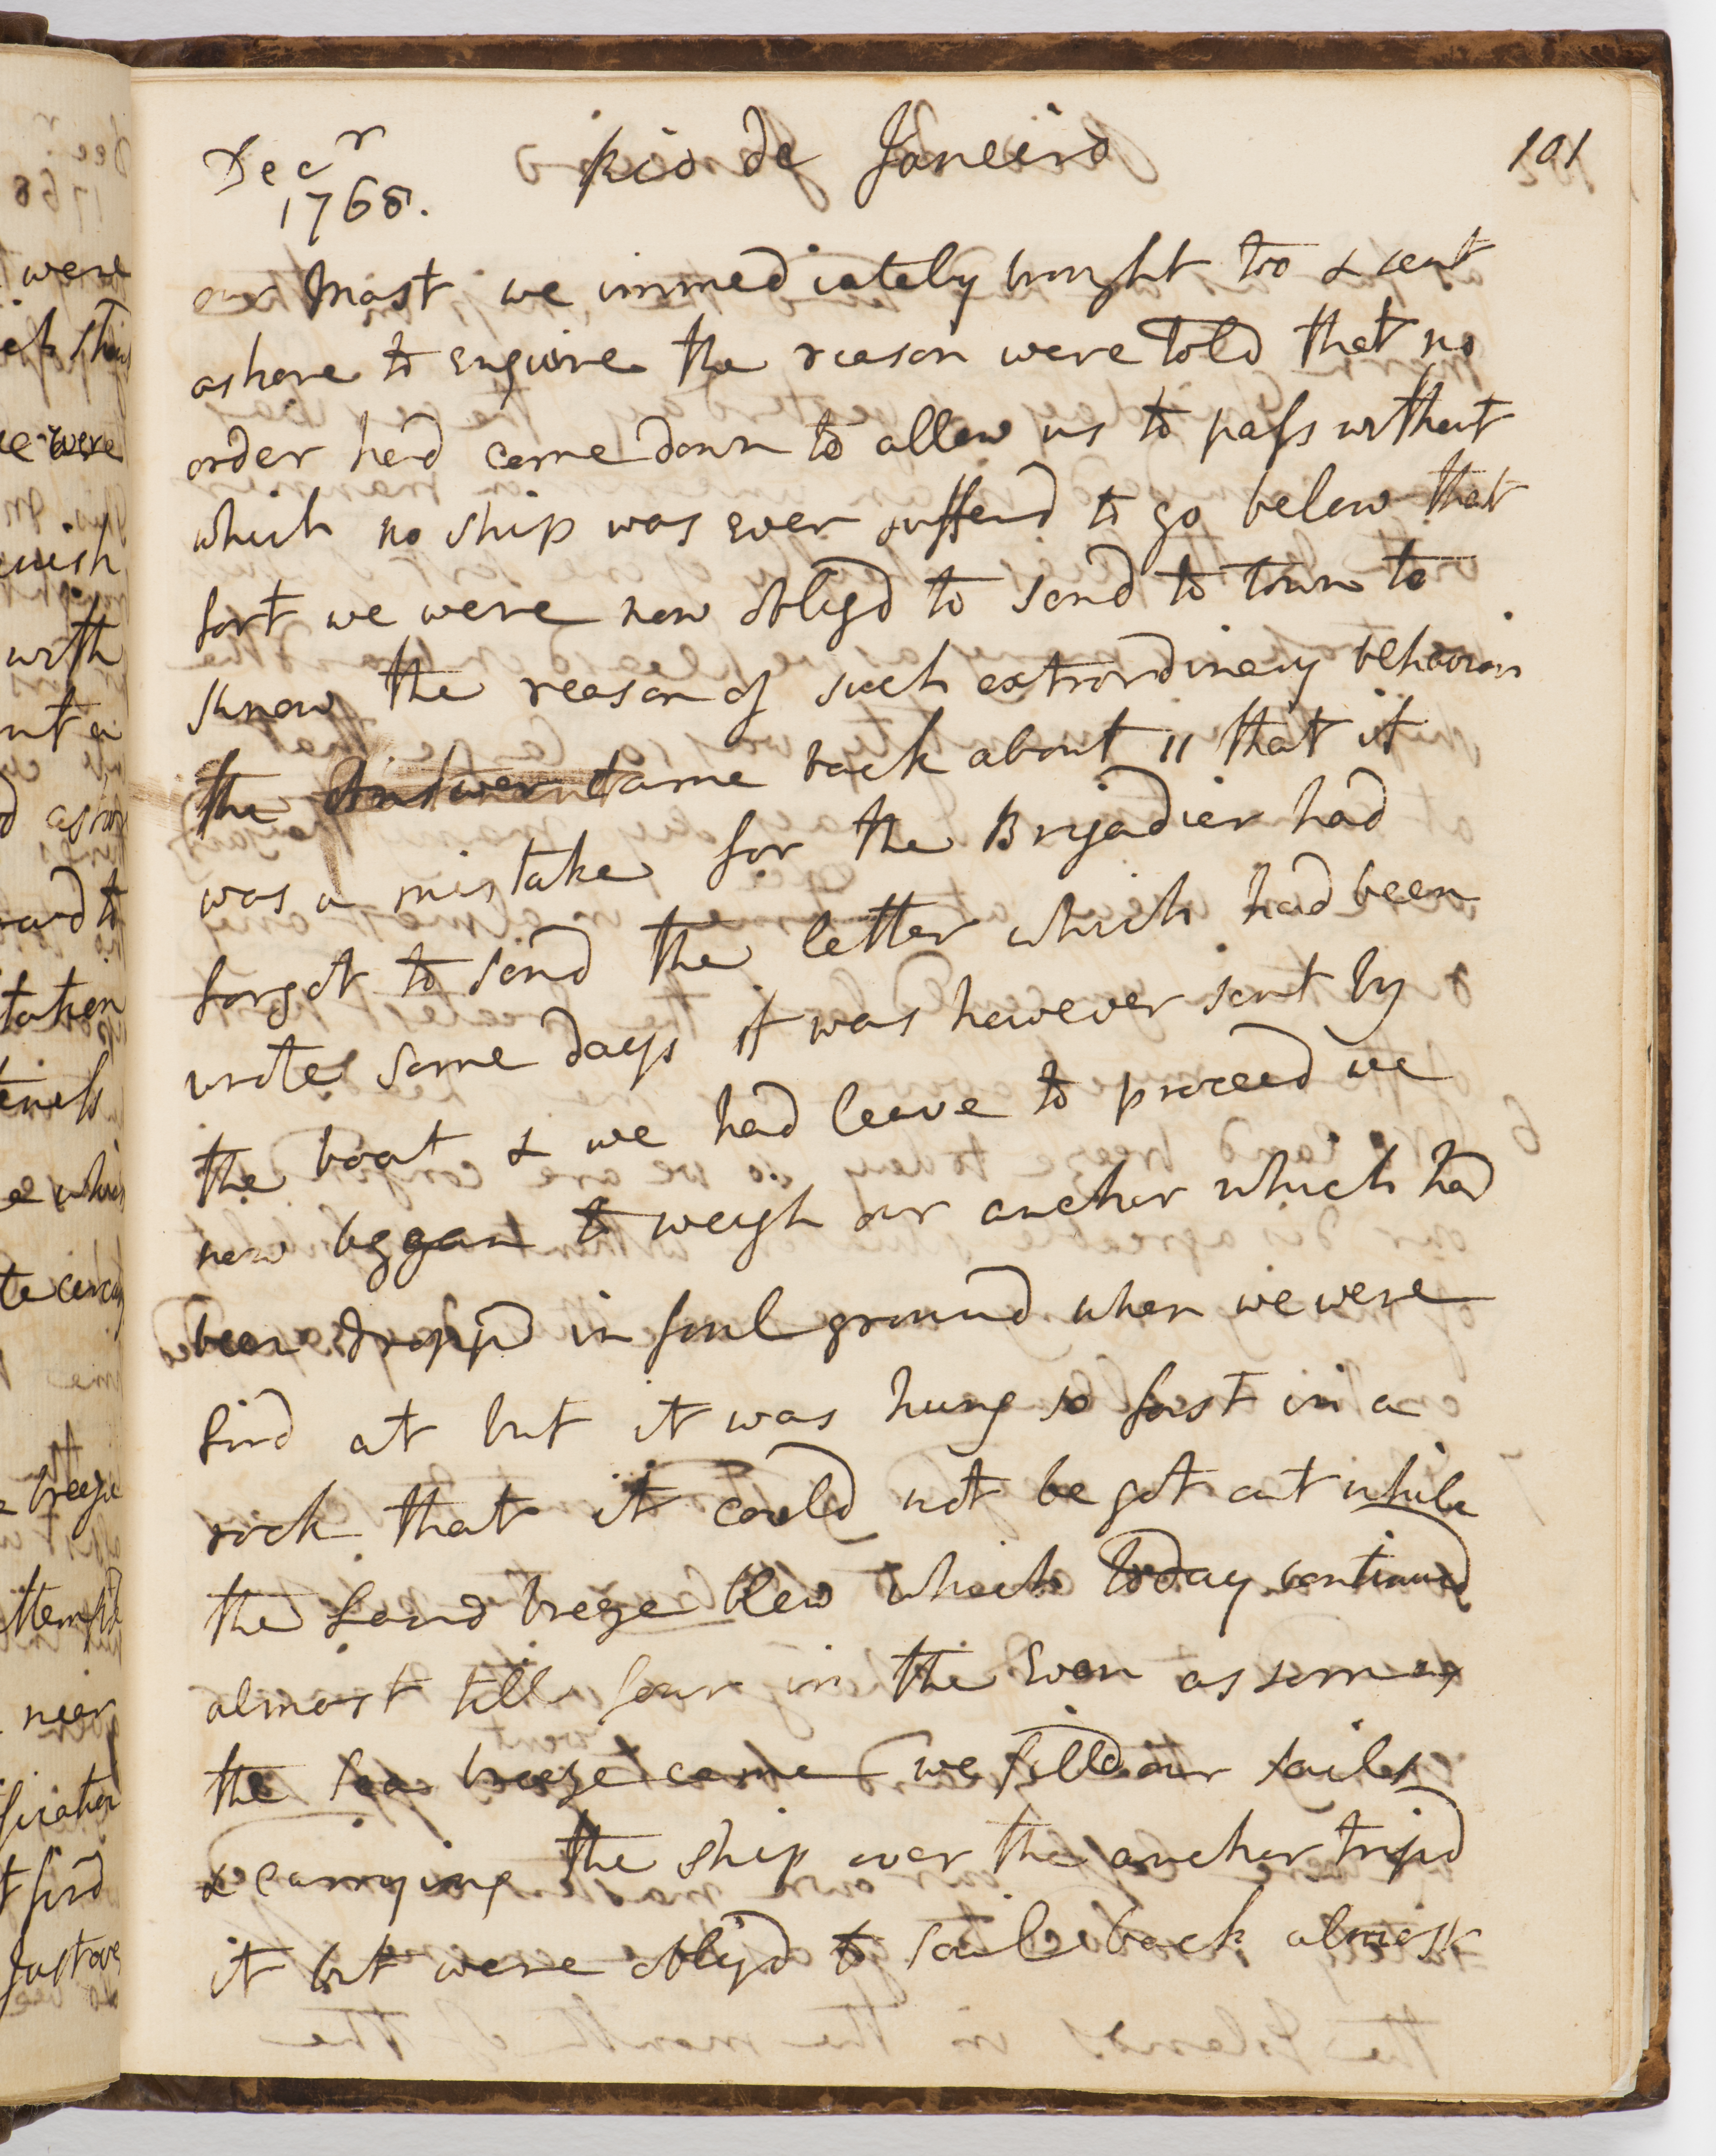 Decr
1768.
Rio de Janeiro
101
our mast we immediately brought too & sent
ashore to enquire the reason were told that no
order had come down to allow us to pass without
which no ship was ever sufferd to go below that
fort we were now obligd to send to town to
know the reason of such extrordinary behaviour
the Answer came back about 11 that it
was a mistake for the Brigadier had
forgot to send the letter which had been
wrote some days it was however sent by
the boat & we had leave to proceed we
now began to weigh our anchor which had
been dropd in foul ground when we were
fird at but it was hung so fast in a
rock that it could not be got out while
the Land breze blew which today continued
almost till four in the Even as soon as
the sea breeze came we filld our sailes
& carrying the ship over the anchor tripd
it but were obligd to sail back almost